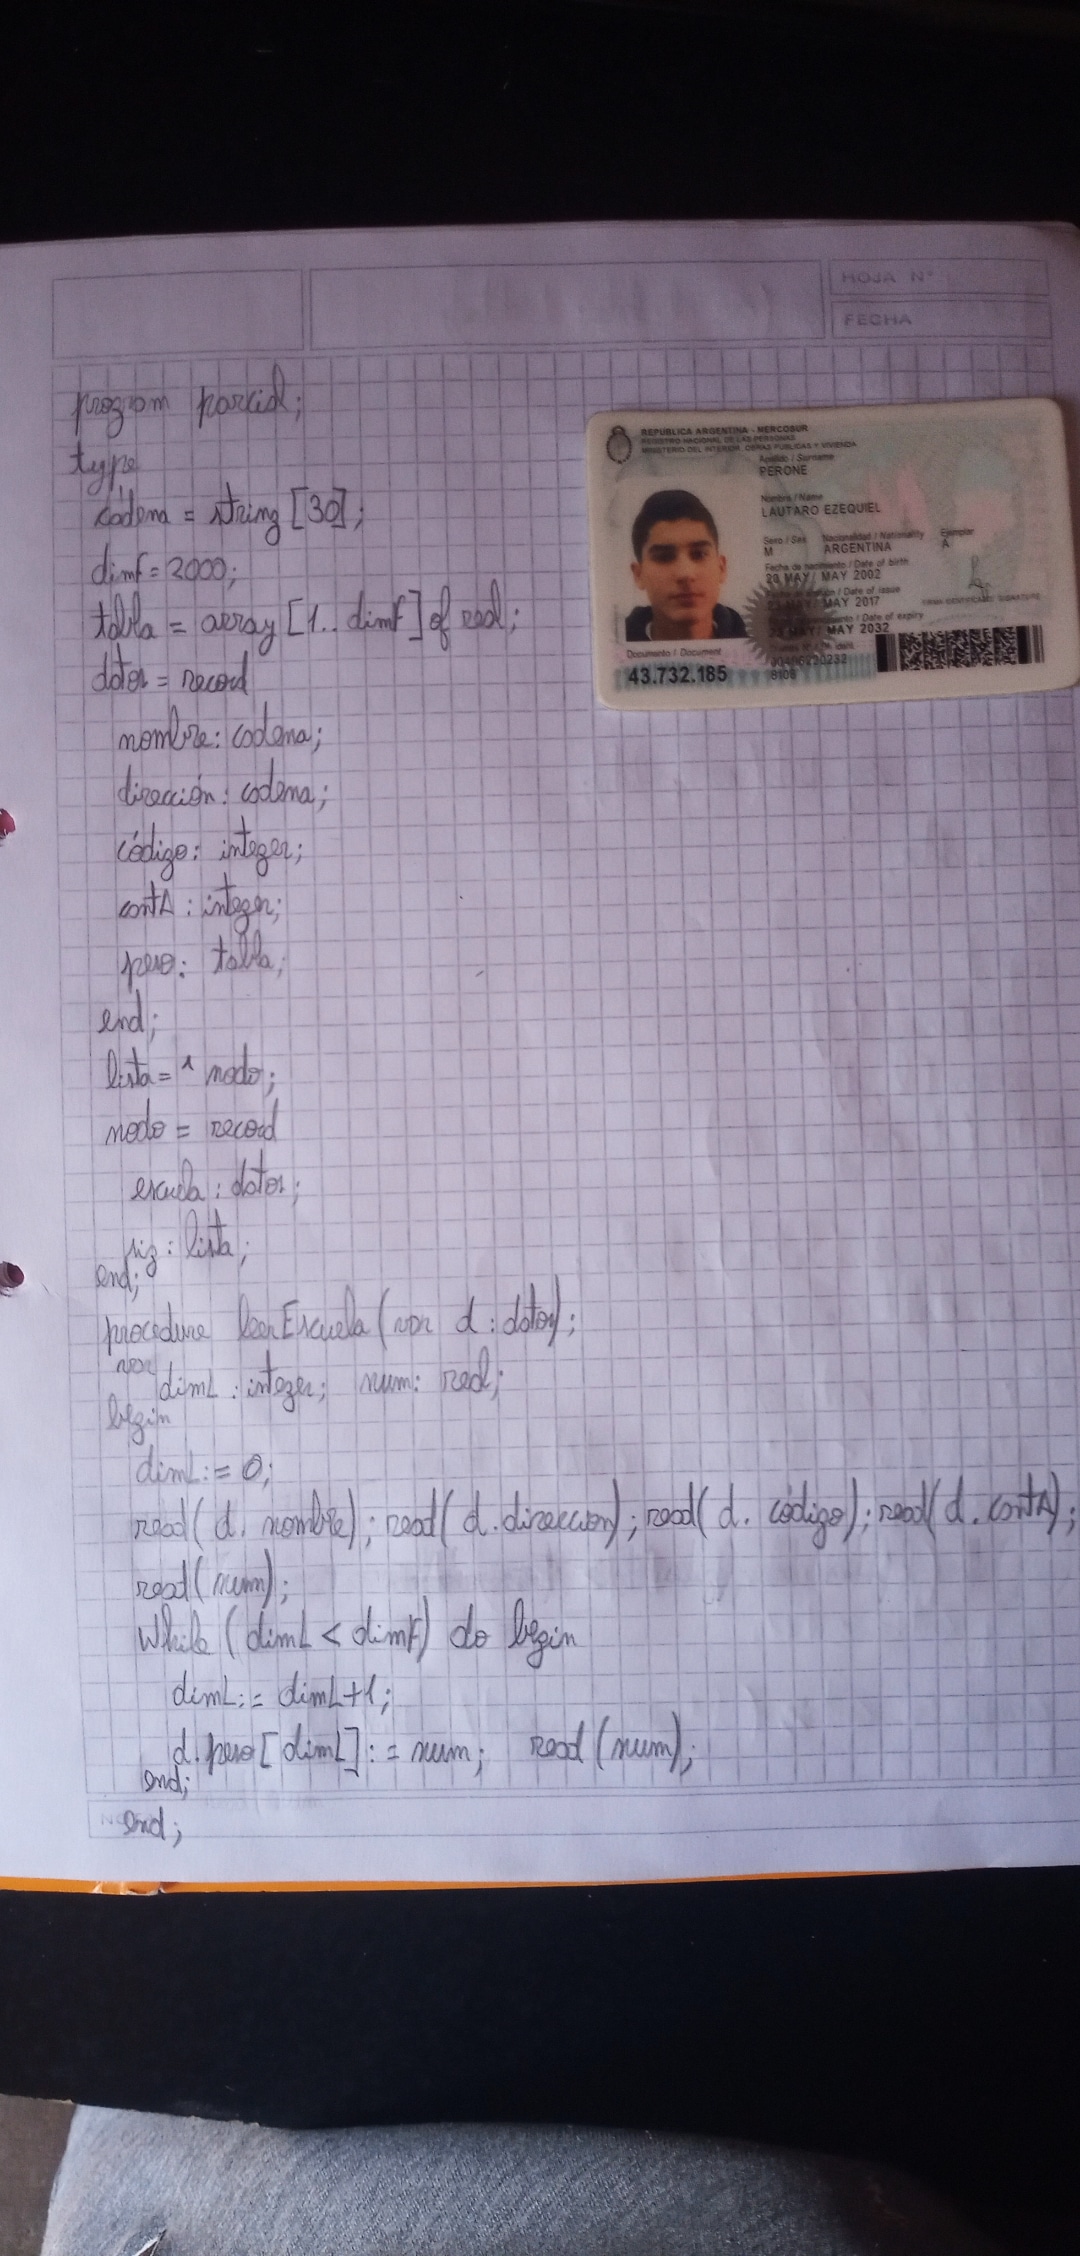 HOJA N°
FECHA
program parcial;
type
cadena = string [30];
dimf = 2000;
tabla = array [1.. dimf] of real;
datos = record
nombre: cadena;
dirección: cadena;
código: integer;
cantA: integer;
peso: tabla;
end;
lista = ^ nodo;
nodo = record
escuela: datos;
sig: lista;
end;
procedure leerEscuela (var d: datos);
var
dimL: integer; num: real;
begin
dimL:= 0;
read( d. nombre); read( d. direccion); read( d. código); read( d. cantA);
read( num);
While ( dimL < dimF) do begin
dimL:= dimL+1;
d. peso [ dimL] := num; read (num);
end;
end;
REPUBLICA ARGENTINA - MERCOSUR
REGISTRO NACIONAL DE LAS PERSONAS
MINISTERIO DEL INTERIOR, OBRAS PUBLICAS Y VIVIENDA
Apellido / Surname
PERONE
Nombre / Name
LAUTARO EZEQUIEL
Sexo / Sex Nacionalidad / Nationality Ejemplar
M ARGENTINA A
Fecha de nacimiento / Date of birth
20 MAY/ MAY 2002
/ Date of issue
MAY/ MAY 2017
/ Date of expiry
MAY/ MAY 2032
Documento / Document
43.732.185